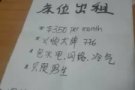 床位出租
* $350 per month
* 义顺大牌 736
* 包水电,网络,冷气
* 只限男生